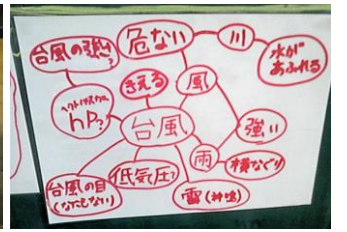 台風の強さ?
危ない
川
水が
あふれる
きえる
風
ヘクトパスカル
hP?
台風
強い
雨
横なぐり
台風の目
(なにもない)
低気圧?
雷(神鳴)